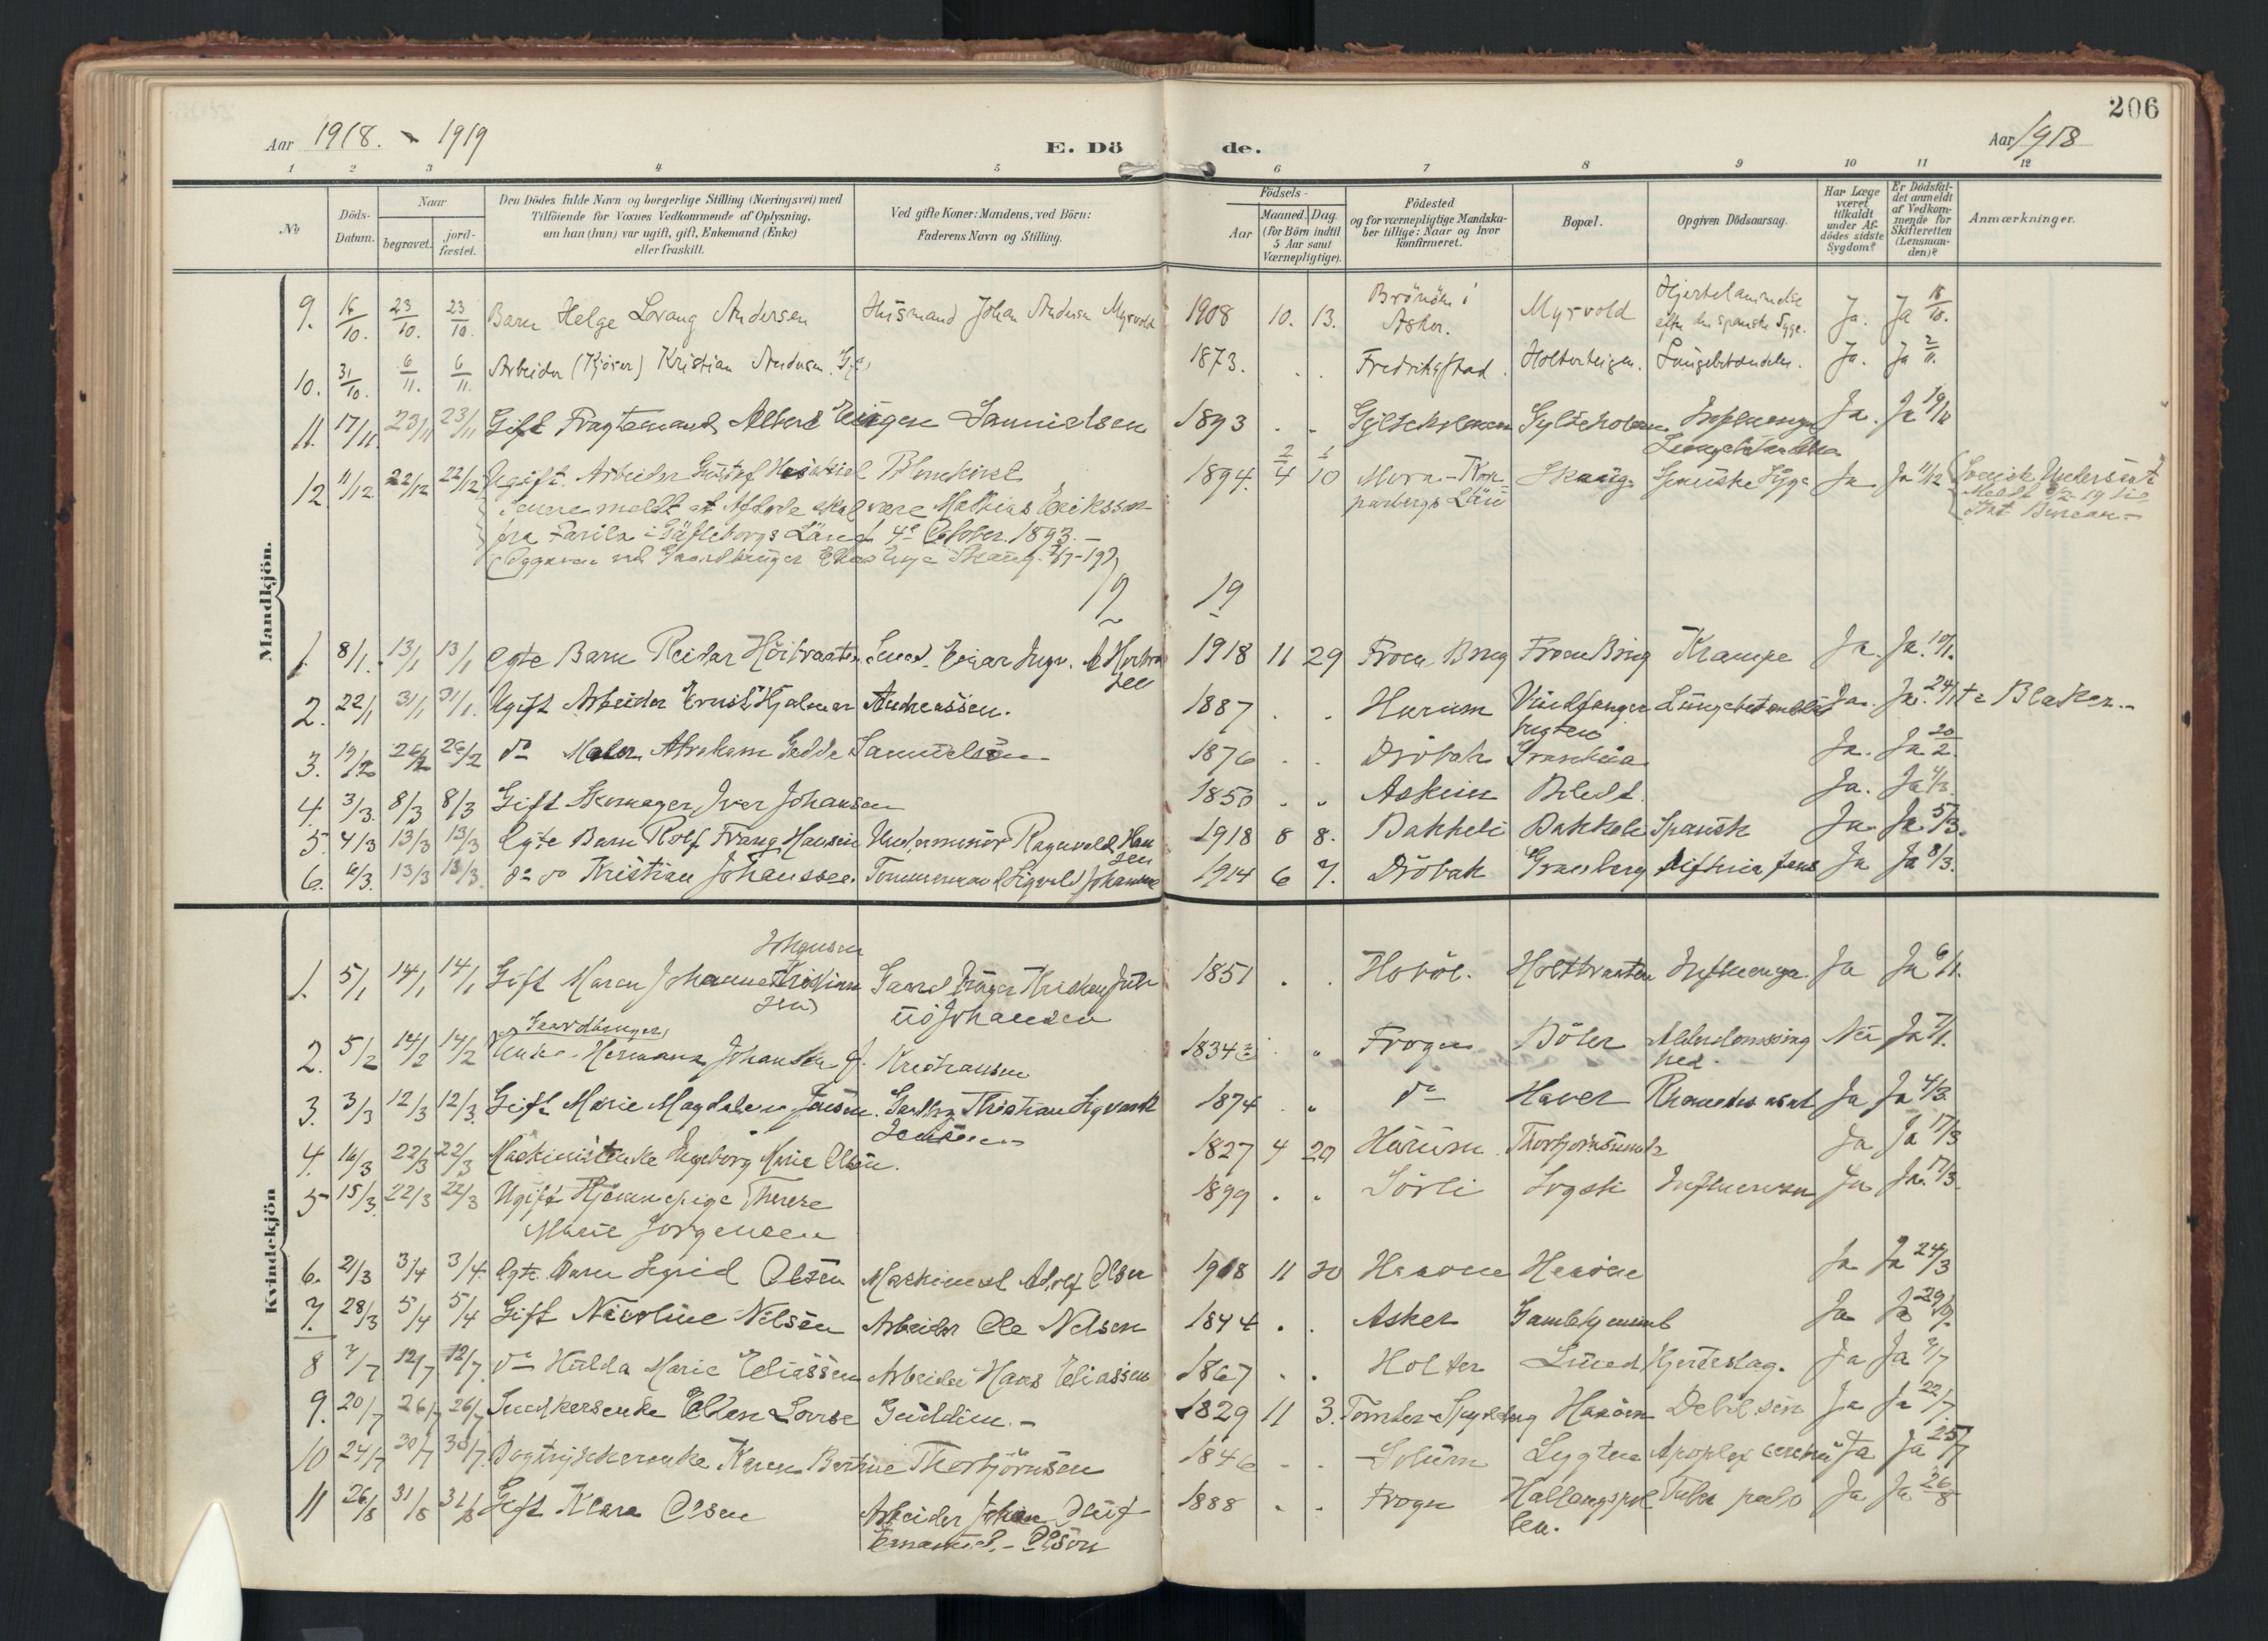 206
Aar 1918. - 1919
E. Döde.
Aar 1918
1 2 3 4 5 6 7 8 9 10 11 12
№
Döds-Datum.
Naar
begravet.
jord-fæstet.
Den Dödes fulde Navn og borgerlige Stilling (Næringsvei) med
Tilföiende for Voxnes Vedkommende af Oplysning,
om han (hun) var ugift, gift, Enkemand (Enke)
eller fraskilt.
Ved gifte Koner: Mandens, ved Börn:
Faderens Navn og Stilling.
Födsels-
Aar
Maaned. Dag.
(for Börn indtil
5 Aar samt
Værnepligtige).
Födested
og for værnepligtige Mandska-
ber tillige: Naar og hvor
konfirmeret.
Bopæl.
Opgiven Dödsaarsag.
Har Læge
været
tilkaldt
under Af-
dödes sidste
Sygdom?
Er Dödsfal-
det anmeldt
af Vedkom-
mende for
Skifteretten
(Lensman-
den)?
Anmærkninger.
Mandkjön.
9. 16/10. 23/10. 23/10. Barn Helge Lorang Andersen Husmand Johan Andersen Myrvold 1908 10. 13. Brönöen i Asker. Myrvold Hjertelammelse efter den spanske Syge. Ja. Ja 18/10.
10. 31/10. 6/11. 6/11. Arbeider (Kjörer) Kristian Andersen. G. 1873. . . Fredrikstad. Holterteigen. Lungebetændelse. Ja. Ja 2/11.
11. 17/11 23/11 23/11 Gift Fragtemand Albert Eugen Samuelsen 1893 . . Gylteholmen Gylteholmen Influenza Lungebetændelse Ja. Ja 19/11
12 11/12. 22/12 22/12 Ugift. Arbeider Gustaf 1894. 4 10 Mora - Kopparbergs Län Skaug Spanske Syge Ja Ja 11/12 Svensk Undersaat
Senere meldt at Afdøde skal være Mathias Eriksson
fra Farila i Gäfleborgs Län f 4de October. 1893. -
19 19
1. 8/1. 13/1 13/1 Egte Barn Reidar Hörtvaaten Smed. Einar Ingv. 1918 11 29 Froen Brug Froen Brug Krampe Ja. Ja. 10/1.
2. 22/1 31/1 31/1. Ugift Arbeider Ernst Hjalmar Andreassen. 1887 . . Hurum Vindfangerbugten Lungebetændelse Ja. Ja. 24/1 + a Blaker. -
3. 19/2 26/2 26/2 do Maler. Abraham Gedde Samuelsen 1876 . . Dröbak Ja. Ja 20/2.
4. 3/3. 8/3 8/3 Gift Skomager, Iver Johansen 1850 . . Askim Ja. Ja 4/3.
5. 4/3 13/3 13/3 Egte Barn Rolf Frang Hansen Underminör Ragnvald Hansen 1918 8 8. Bakkeli Bakkeli Spansk Ja. Ja. 5/3.
6. 6/3. 13/3 13/3. do do Kristian Johanssen. Tömmermand Sigvald Johansen 1914 6 7. Dröbak Granberg Difteri Ja Ja 8/3.
Kvindekjön
1. 5/1 14/1 14/1 Gift Maren Johanne Johansen Johansen 1851 . . Hobøl. Holtbraaten Influenza. Ja Ja 6/1.
2. 5/2 14/2 14/2 Gaardbruger Enke - Hermana Johanne Kristiansen 1834 . Frogn Döler Alderdomssvaghed. Nei Ja 7/1.
3. 3/3 12/3 12/3. Gift Marie Magdalene Jensen. Gaardbr Kristian Sigvardt Jensen 1874 . . do Haver Ja Ja 4/3.
4. 16/3 22/3 22/3 Maskinistenke Ingeborg Marie Olsen. 1827 4 29 Hurum. Ja Ja 17/3
5 15/3. 22/3 22/3 Ugift Hjemmepige Therese
Marie Jörgensen 1899 . . Sörli Influenza Ja Ja. 17/3
6. 21/3 3/4 3/4. Egte. Barn Sigrid Olsen Maskinist Adolf Olsen 1918 11 30 Haaöen Haaöen Ja Ja 24/3
7. 28/3 5/4 5/4 Gift Nicoline Nilsen Arbeider Ole Nilsen 1844 . . Asker Ja Ja 29/3.
8 7/7 12/7 12/7. do Hulda Marie Eliassen Arbeider Hans Eliassen 1867 . . Holter Lund Hjerteslag. Ja Ja 7/7
9. 20/7 26/7 26/7 Snedkersenke Ellen Lovise Guldim. - 1829 11 3. Tomter - Spydeberg Haaöen Debil. sen Ja Ja 22/7
10 24/7 30/7 30/7. Bogtrykkerenke Karen Bertine Thorbjörnsen 1846 . . Solum Lygten Apoplex cerebri Ja Ja 25/7
11 26/8 31/8 31/8 Gift Klara Olsen Arbeider Johan Oluf
Emanuel. - Olsen 1888 . . Frogn Hallangspollen. Tuber pulm Ja Ja 26/8